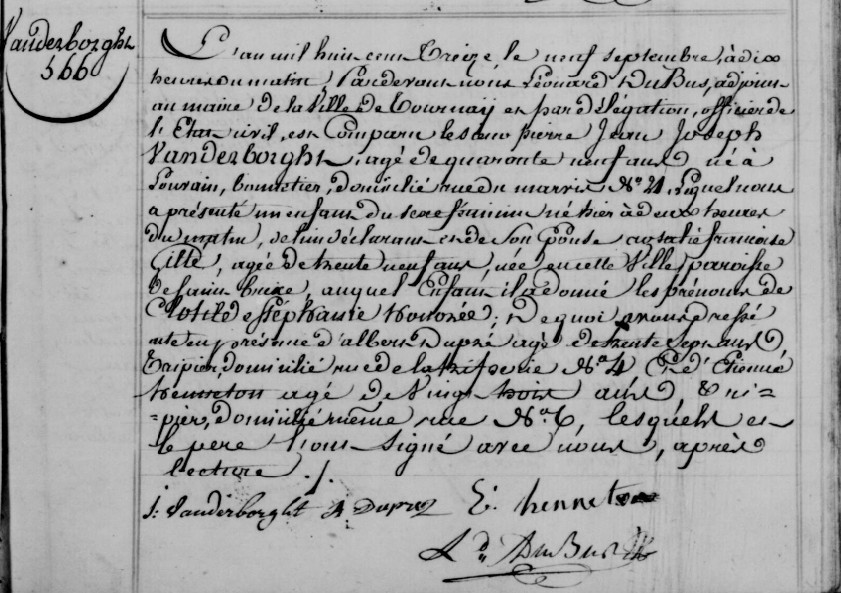 Vanderborght
566
L'an mil huit cent treize, le neuf septembre, à dix
heures du matin, Pardevant nous Léonard DuBus, adjoint
au maire de la Ville de Tournay et par délégation, officier de
l'Etat civil, est Comparu le sieur pierre Jean Joseph
Vanderborght, agé de quarante neuf ans, né à
Louvain, bonnetier, domicilié rue du marvis N.º 21, Lequel nous
a présenté un enfant du sexe féminin né hier à deux heures
du matin, de lui déclarant et de son Epouse rosalie françoise
Cille, agée de trente neuf ans, née en cette Ville, paroisse
de saint brixe, auquel Enfant il a donné les prénoms de
Clotilde Stéphanie honorée; De quoi avons dressé
acte en présence d'albert Dupré agé de trente sept ans,
Tripier, domicilié rue de la triperie N.º 4 Et d' Etienne
henneton agé de Vingt trois ans, Tri=
=pier, domicilié même rue N.º 6, lesquels et
le pere l'ont Signé avec nous, après
lecture ./.
j: Vanderborght A Duprez E. henneton
Ld DuBus